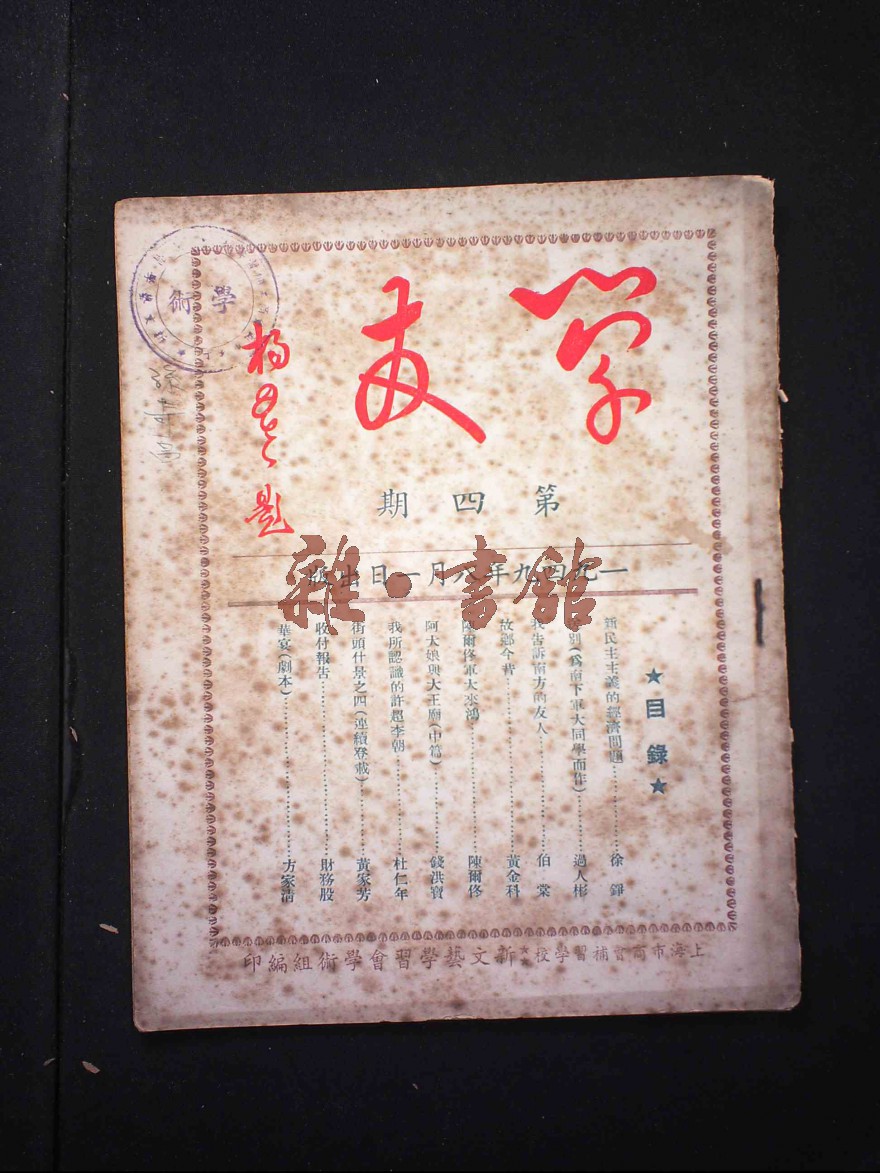 學友
楊 題
學術
第四期
一九四九年八月一日出版
★目錄★
新民主主義的經濟問題 徐錚
別（爲南下軍大同學而作） 過人彬
我告訴南方的友人 伯棠
故鄉今昔 黃金科
陳爾佟軍大來鴻 陳爾佟
阿大娘與大王廟（中篇） 錢洪寶
我所認識的許超李朝 杜仁年
街頭什景之四（連續登載） 黃家芳
收付報告 財務股
華宴（劇本） 方家清
上海市商會補習學校 新文藝學習會學術組編印
雜·書館